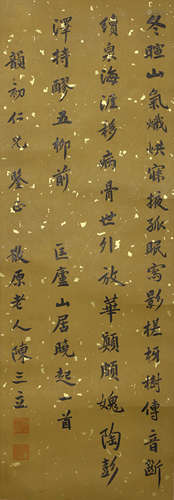 冬暄山氣熾烘寐掖孤眠寫影槎枒樹傳音斷
續泉海涯移病骨世外放華顛頗媿陶彭
澤持醪五柳前　匡廬山居曉起一首
韻初仁兄鑒正　散原老人陳三立